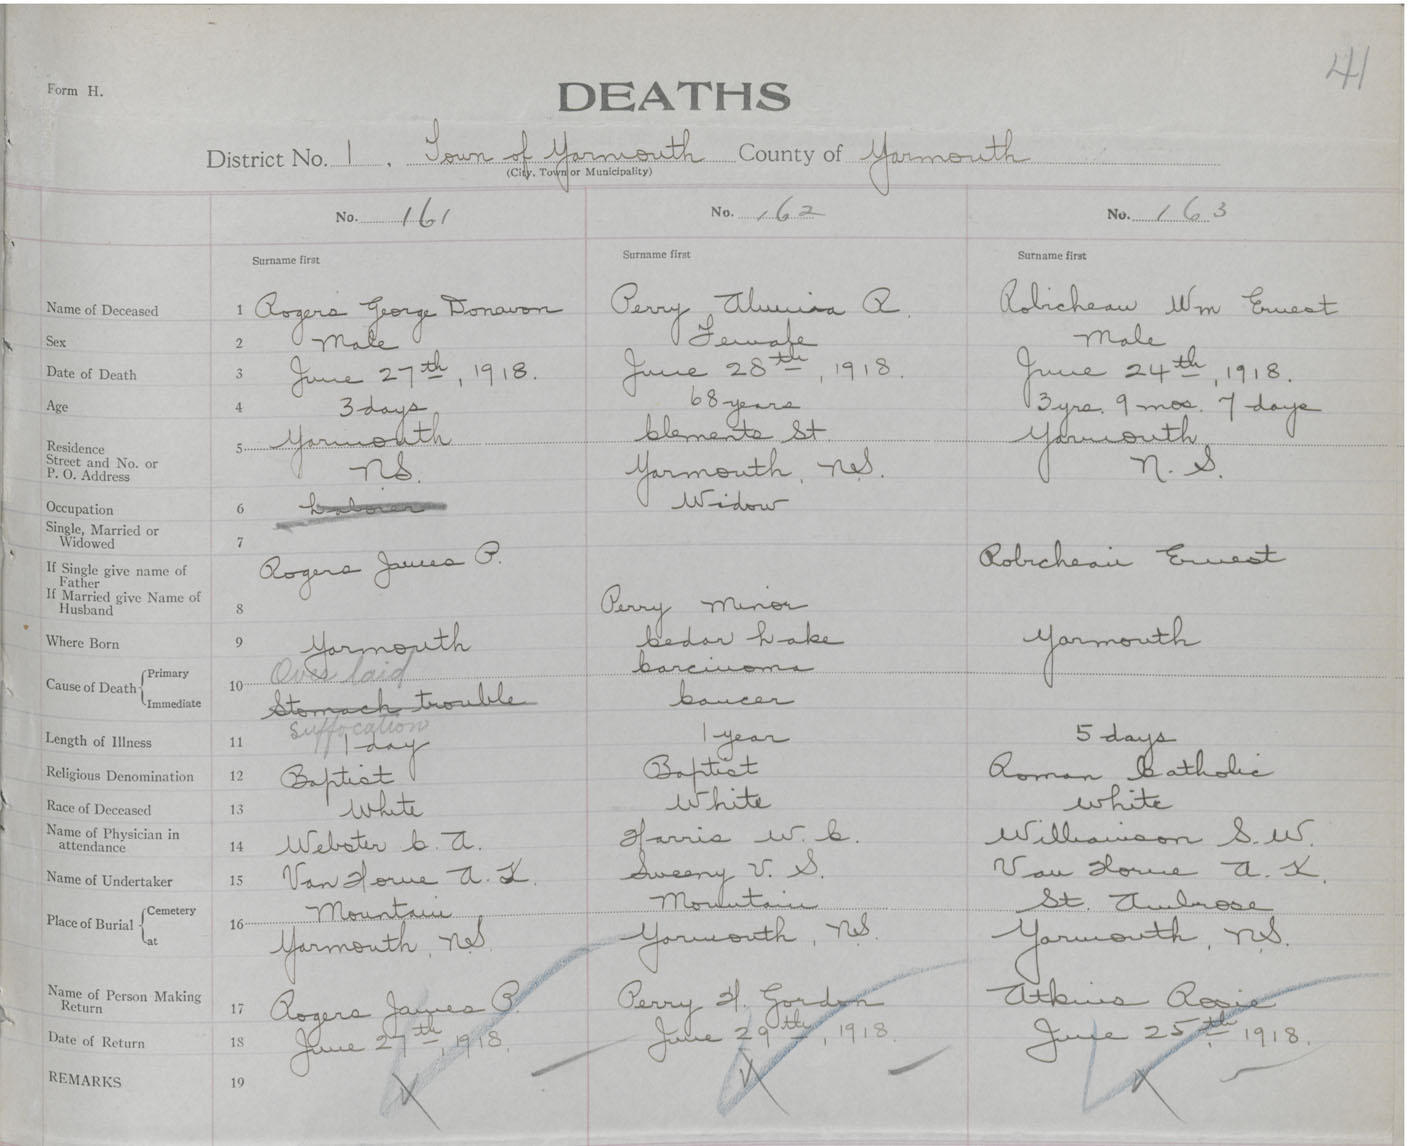 41
Form H.
DEATHS
District No. 1, Town of Yarmouth County of Yarmouth
(City, Town or Municipality)
No. 161 No. 162 No. 163
Surname first Surname first Surname first
Name of Deceased 1 Rogers George Donavon Perry Almira R. Robicheau Wm Ernest
Sex 2 Male Female Male
Date of Death 3 June 27th, 1918. June 28th, 1918. June 24th, 1918.
Age 4 3 days 68 years 3 yrs. 9 mos. 7 days
Residence 5 Yarmouth Clements St. Yarmouth
Street and No. or
P. O. Address N.S. Yarmouth, N.S. N. S.
Occupation 6 Laborer Widow
Single, Married or
Widowed 7
If Single give name of
Father Rogers James P. Robicheau Ernest
If Married give Name of
Husband 8 Perry Minor
Where Born 9 Yarmouth Cedar Lake Yarmouth
Cause of Death Primary 10 Over laid Carcinoma
Immediate Stomach trouble Cancer
Suffocation
Length of Illness 11 1 day 1 year 5 days
Religious Denomination 12 Baptist Baptist Roman Catholic
Race of Deceased 13 White White White
Name of Physician in
attendance 14 Webster C. A. Harris W. C. Williamson S. W.
Name of Undertaker 15 Van Horne A. K. Sweeny V. S. Van Horne A. K.
Place of Burial Cemetery 16 Mountain Mountain St. Ambrose
at Yarmouth, N.S. Yarmouth, N.S. Yarmouth, N.S.
Name of Person Making
Return 17 Rogers James P. Perry H. Gordon Atkins Rosie
Date of Return 18 June 27th, 1918. June 29th, 1918. June 25th, 1918.
REMARKS 19